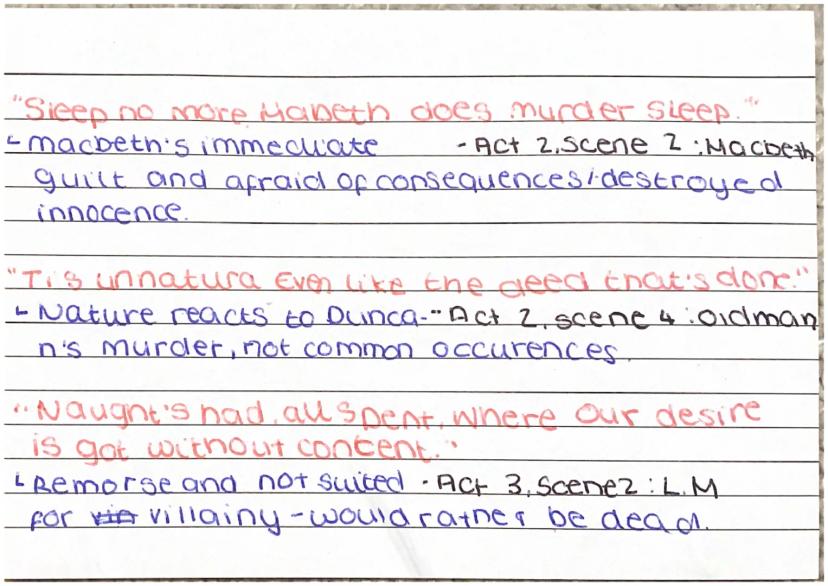 "Sleep no more Mabeth does murder sleep."
↳ macbeth's immediate - Act 2, scene 2 : Macbeth
guilt and afraid of consequences/destroyed
innocence.
"Tis unnatura Even like the deed that's done."
↳ Nature reacts to Dunca-- Act 2, scene 4 : oldman
n's murder, not common occurences.
"Naught's had, all spent, where our desire
is got without content."
↳ Remorse and not suited - Act 3, scene 2 : L.M
for villainy - would rather be dead.